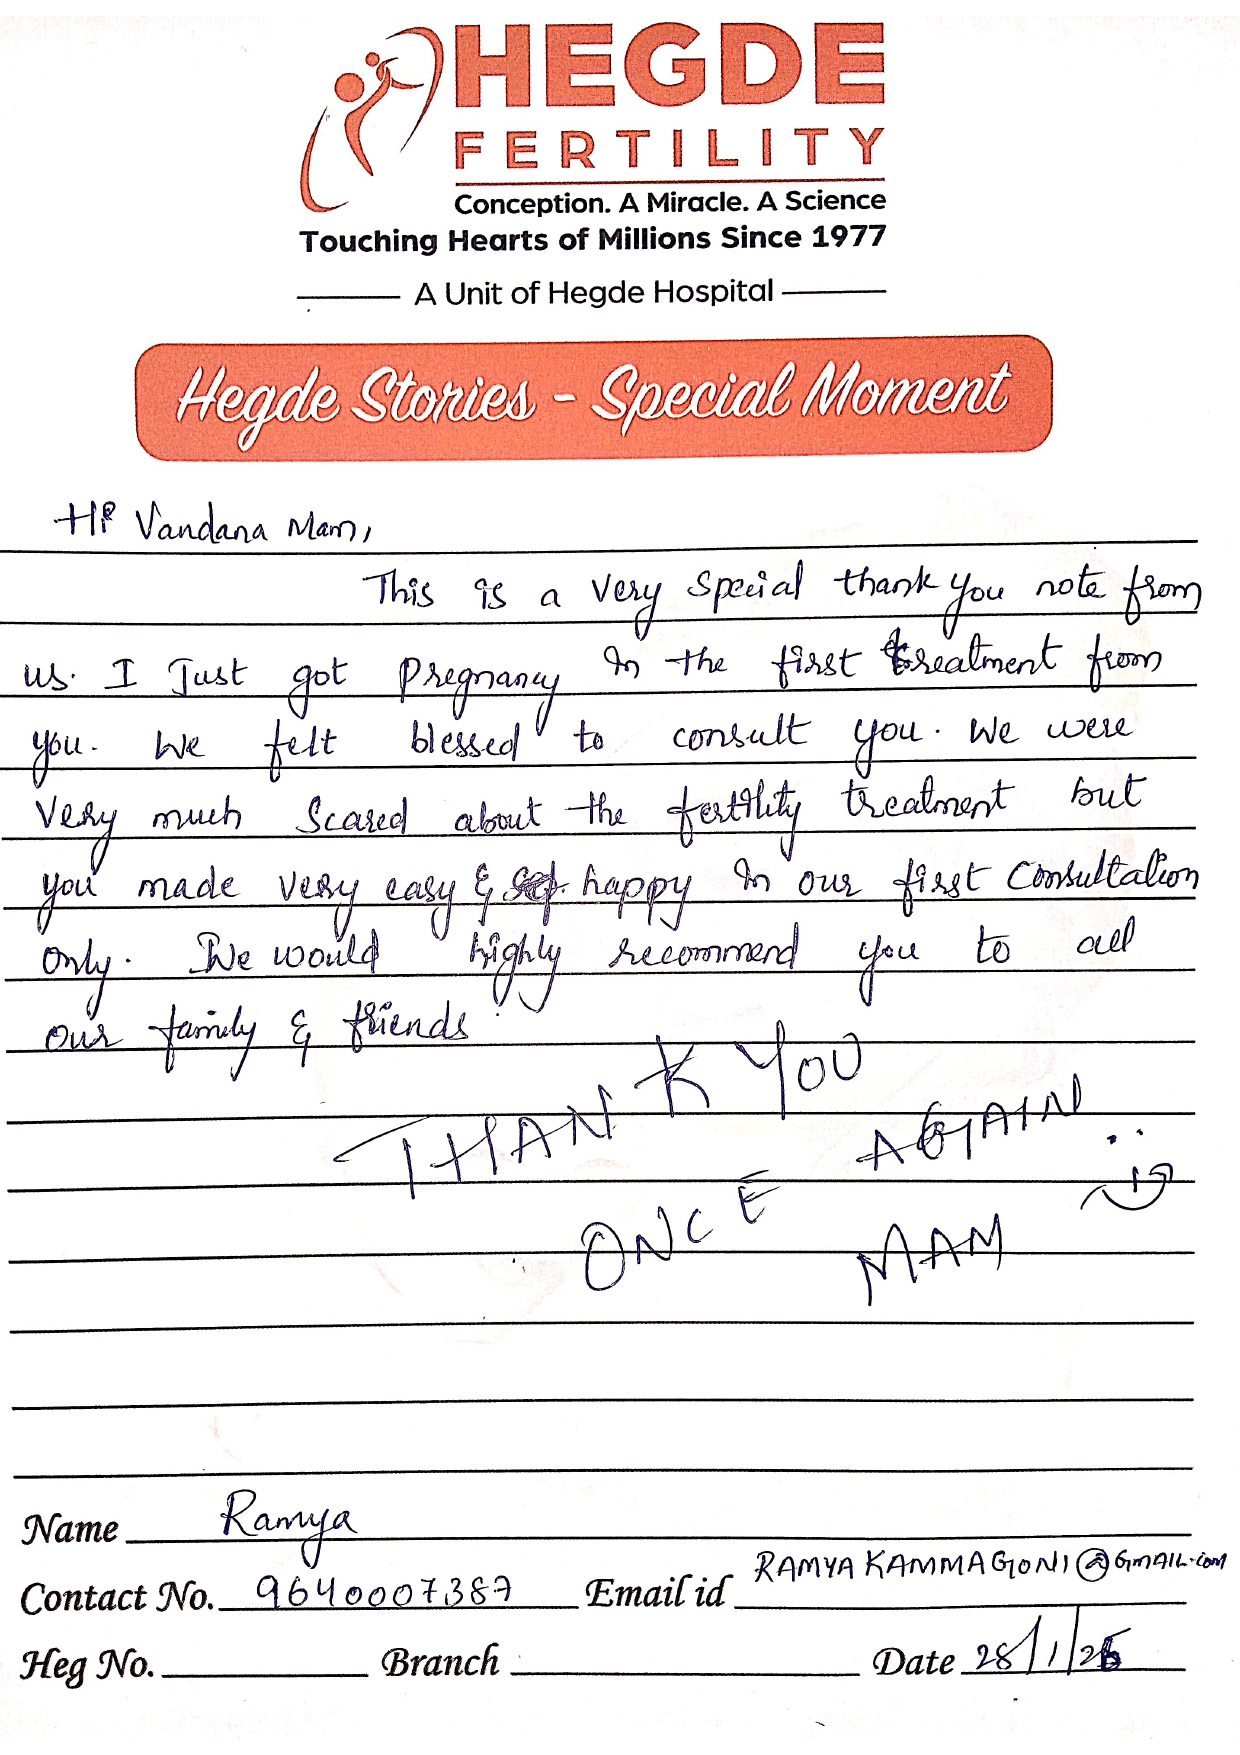 HEGDE
FERTILITY
Conception. A Miracle. A Science
Touching Hearts of Millions Since 1977
A Unit of Hegde Hospital
Hegde Stories - Special Moment
Hi Vandana Mam,
This is a very special thank you note from
us. I Just got pregnancy in the first treatment from
you. We felt blessed to consult you. We were
very much scared about the fertility treatment but
you made very easy & happy in our first consultation
only. We would highly recommend you to all
our family & friends.
THANK YOU
ONCE AGAIN
MAM
Name Ramya
Contact No. 9640007387 Email id RAMYAKAMMAGONI@GMAIL.com
Heg No. Branch Date 28/1/26